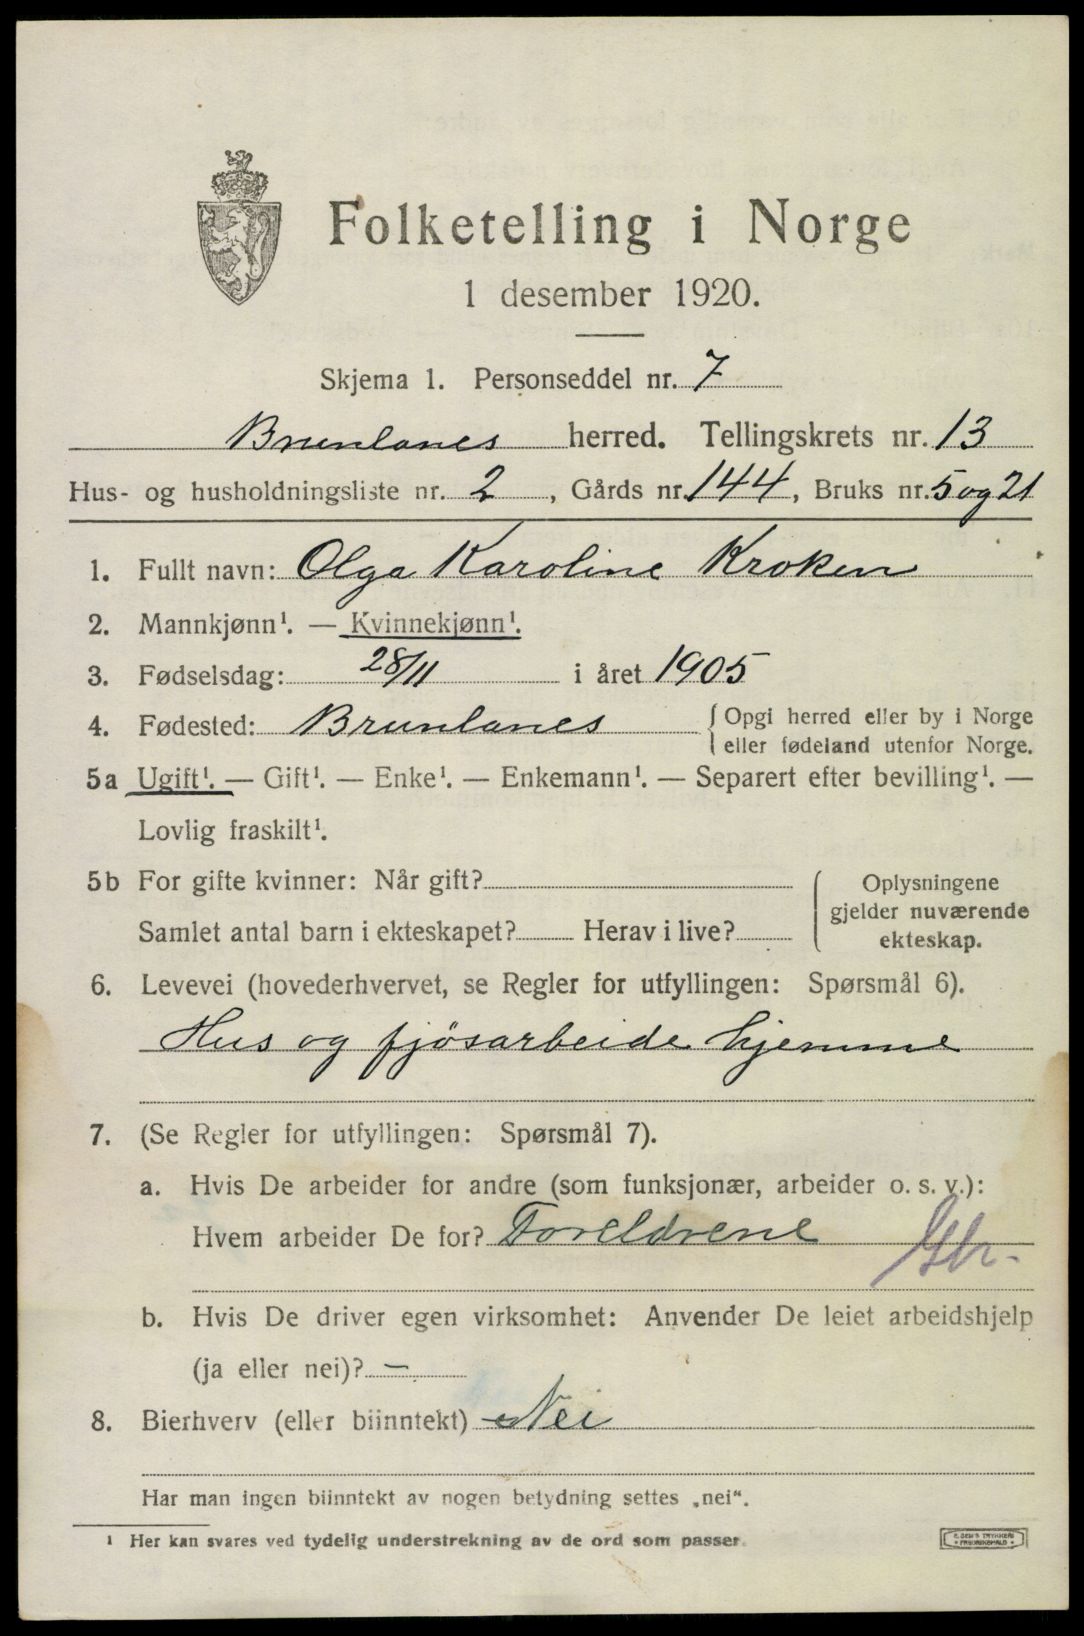 Folketelling i Norge
1 desember 1920.
Skjema 1. Personseddel nr. 7
Brunlanes herred. Tellingskrets nr. 13
Hus- og husholdningsliste nr. 2, Gårds nr. 144, Bruks nr. 5 og 21
1. Fullt navn: Olga Karoline Kroken
2. Mannkjønn¹. — Kvinnekjønn¹.
3. Fødselsdag: 28/11 i året 1905
4. Fødested: Brunlanes { Opgi herred eller by i Norge
eller fødeland utenfor Norge.
5a Ugift¹. — Gift¹. — Enke¹. — Enkemann¹. — Separert efter bevilling¹. —
Lovlig fraskilt¹.
5b For gifte kvinner: Når gift?
Samlet antal barn i ekteskapet? Herav i live?
Oplysningene
gjelder nuværende
ekteskap.
6. Levevei (hovederhvervet, se Regler for utfyllingen: Spørsmål 6).
Hus og fjøsarbeide hjemme
7. (Se Regler for utfyllingen: Spørsmål 7).
a. Hvis De arbeider for andre (som funksjonær, arbeider o. s. v.):
Hvem arbeider De for? Foreldrene
b. Hvis De driver egen virksomhet: Anvender De leiet arbeidshjelp
(ja eller nei)? —
8. Bierhverv (eller biinntekt) Nei
Har man ingen biinntekt av nogen betydning settes „nei“.
¹ Her kan svares ved tydelig understrekning av de ord som passer.